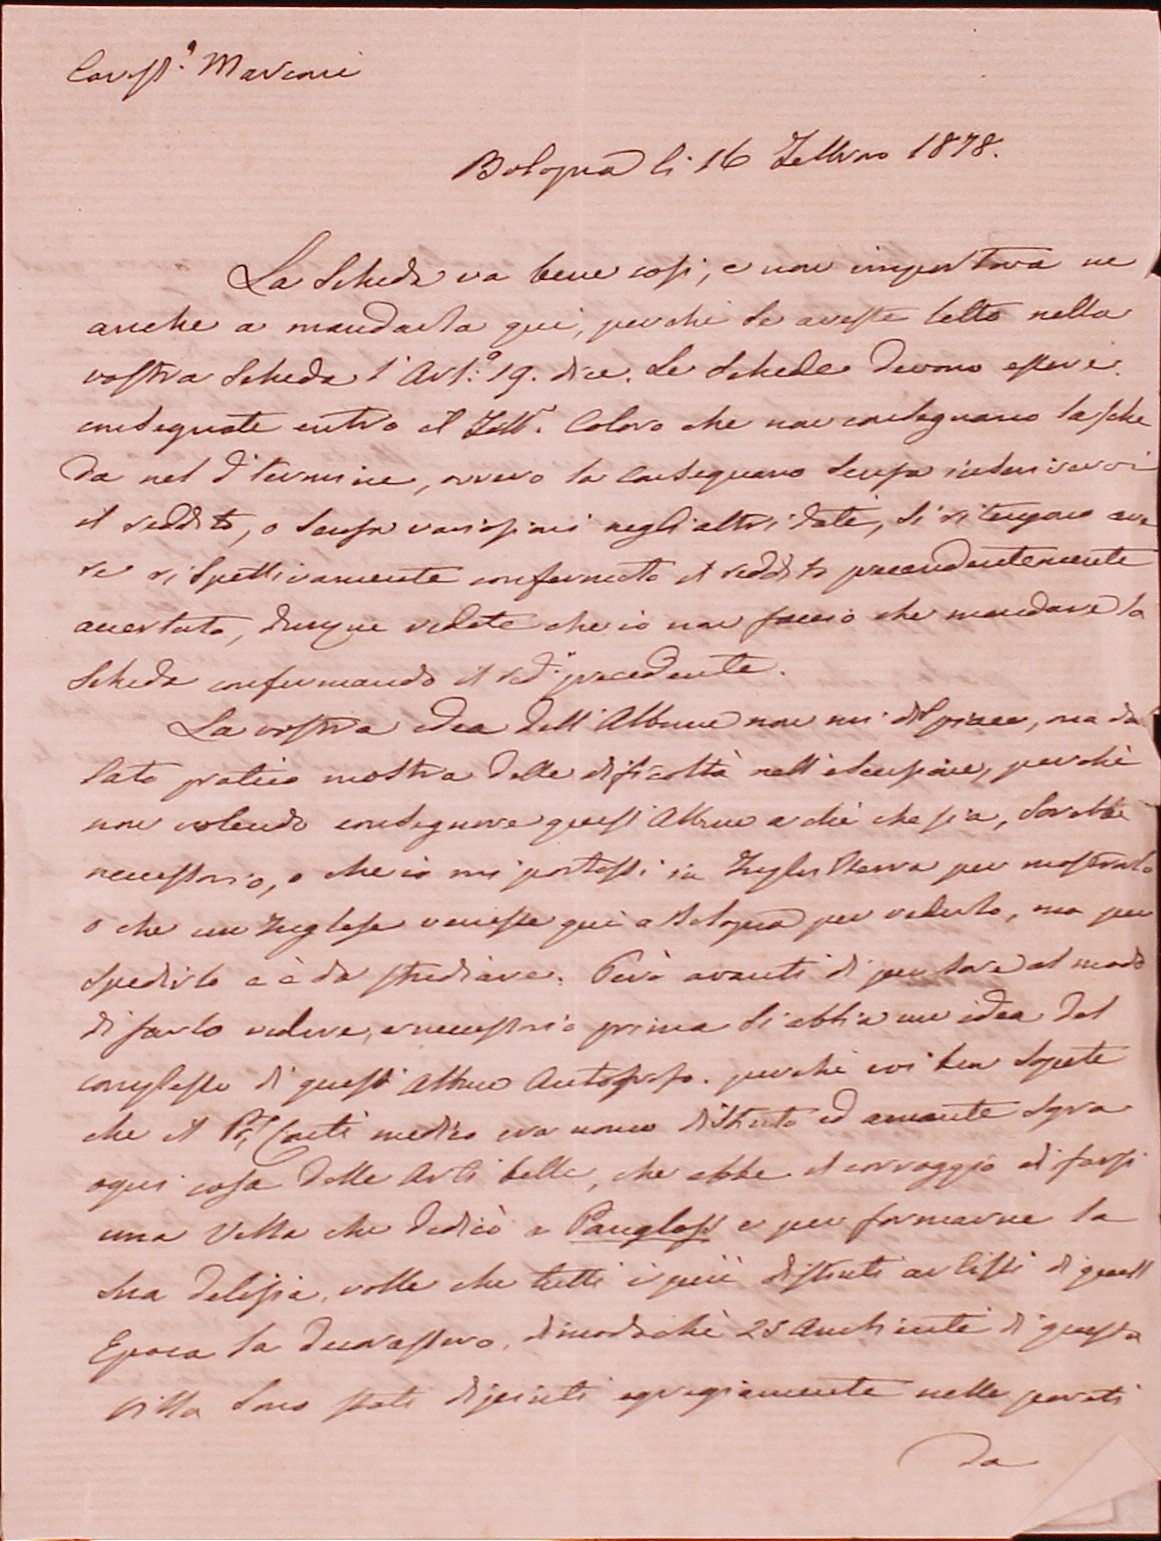 Cariss.o Marconi
Bologna li 16 Febbraio 1878.
La Scheda va bene così, e non importava ne
anche a mandarla qui, perchè se aveste letto nella
vostra Scheda l'Art.o 19. dice. Le Schede devono essere
consegnate entro il Febb. Coloro che non consegnano la sche
da nel d.o termine, ovvero la consegnano senza inscrivervi
il reddito, o senza variazioni negli altri dati, si ritengono ave
re rispettivamente confermato il reddito precedentemente
accertato, dunque vedete che io non faccio che mandare la
Scheda confermando il red.o precedente.
La vostra idea dell'Album non mi dispiace, ma da
lato pratico mostra delle dificoltà nell'esecuzione, perchè
non volendo consegnare questi Album a chi che sia, sarebbe
necessario, o che io mi portassi in Inghilterra per mostrarlo
o che un Inglese venisse qui a Bologna per vederlo, ma per
spedirlo c'è da studiare. Però avanti di pensare al modo
di farlo vedere, è necessario prima si abbia un idea del
complesso di questi Album Autografo. perchè voi ben sapete
che il Pr. Conti medico era uomo distinto ed amante sopra
ogni cosa delle Arti belle, che ebbe il corraggio di farsi
una Villa che dedicò a Pangloss e per formarne la
sua delizia, volle che tutti i più distinti artisti di quell
Epoca la decorassero, dimodochè 25 Ambienti di questa
Villa sono stati dipinti egregiamente nelle pareti
da